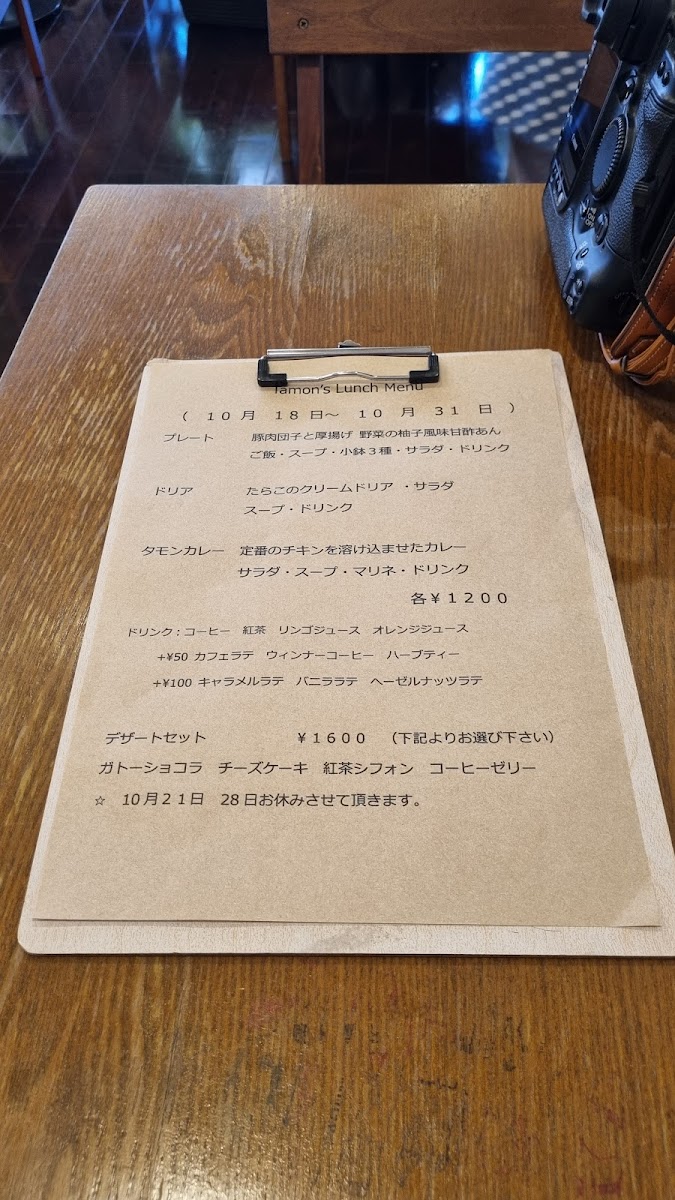 Tamon's Lunch Menu
（ 10月 18日～ 10月 31日 ）
プレート 豚肉団子と厚揚げ 野菜の柚子風味甘酢あん
ご飯・スープ・小鉢３種・サラダ・ドリンク
ドリア たらこのクリームドリア ・サラダ
スープ・ドリンク
タモンカレー 定番のチキンを溶け込ませたカレー
サラダ・スープ・マリネ・ドリンク
各￥１２００
ドリンク：コーヒー 紅茶 リンゴジュース オレンジジュース
+¥50 カフェラテ ウィンナーコーヒー ハーブティー
+¥100 キャラメルラテ バニララテ ヘーゼルナッツラテ
デザートセット ￥１６００ （下記よりお選び下さい）
ガトーショコラ チーズケーキ 紅茶シフォン コーヒーゼリー
☆ 10月２１日 28日お休みさせて頂きます。